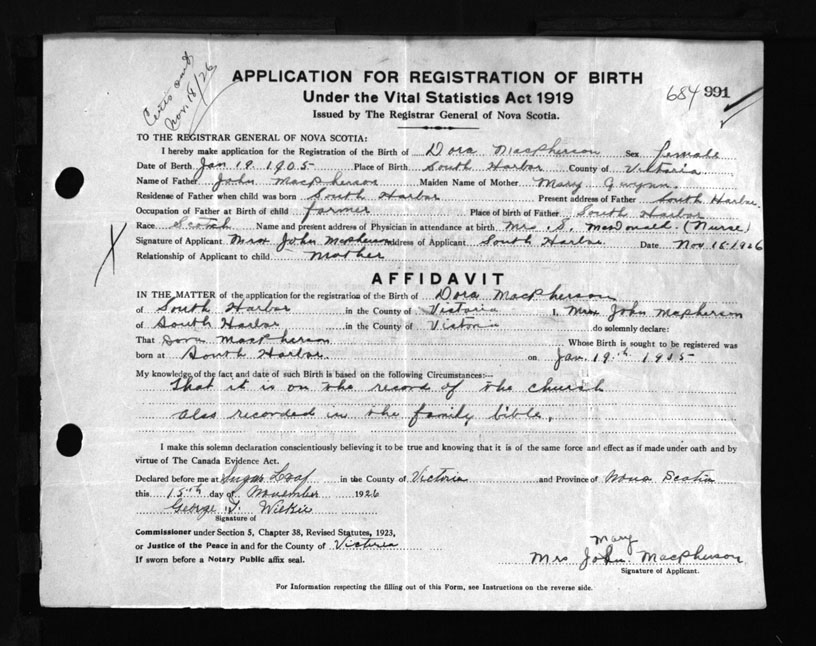 Certs and
Nov. 18/26
APPLICATION FOR REGISTRATION OF BIRTH
Under the Vital Statistics Act 1919
684 991
Issued by The Registrar General of Nova Scotia.
TO THE REGISTRAR GENERAL OF NOVA SCOTIA:
I hereby make application for the Registration of the Birth of Dora MacPherson Sex female
Date of Birth Jan 19. 1905 Place of Birth South Harbor County of Victoria
Name of Father John MacPherson Maiden Name of Mother Mary Gwynn
Residense of Father when child was born South Harbor Present address of Father South Harbor
Occupation of Father at Birth of child farmer Place of birth of Father South Harbor
Race Scotch Name and present address of Physician in attendance at birth Mrs. S. MacDonald. (Nurse)
Signature of Applicant Mrs John McPherson Address of Applicant South Harbor Date Nov 15-1926
Relationship of Applicant to child mother
AFFIDAVIT
IN THE MATTER of the application for the registration of the Birth of Dora MacPherson
of South Harbor in the County of Victoria I, Mrs John McPherson
of South Harbor in the County of Victoria do solemnly declare:
That Dora MacPherson Whose Birth is sought to be registered was
born at South Harbor. on Jan. 19th 1905-
My knowledge of the fact and date of such Birth is based on the following Circumstances:—
That it is on the record of the church
also recorded in the family bible.
I make this solemn declaration conscientiously believing it to be true and knowing that it is of the same force and effect as if made under oath and by
virtue of The Canada Evidence Act.
Declared before me at Sugar Loaf in the County of Victoria and Province of Nova Scotia
this 15th day of November 1926
George Wilkie
Signature of
Commissioner under Section 5, Chapter 38, Revised Statutes, 1923,
or Justice of the Peace in and for the County of Victoria
If sworn before a Notary Public affix seal.
Mary
Mrs John MacPherson
Signature of Applicant.
For Information respecting the filling out of this Form, see Instructions on the reverse side.